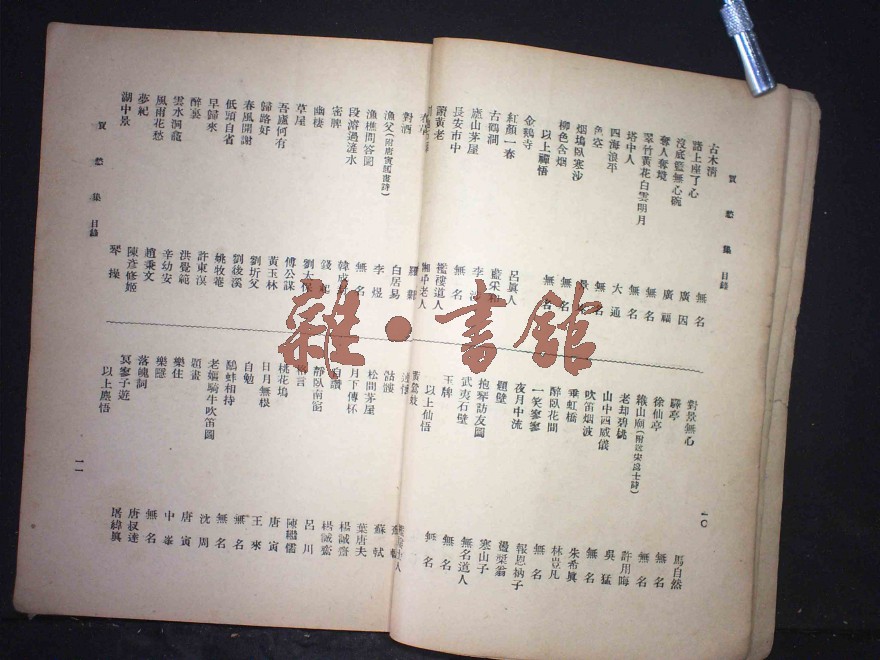 賀愁集 目錄
古木清 無名
諸上座了心 廣因
沒底籃無心碗 廣福
奪人奪境 無名
翠竹黃花白雲明月 無名
塔中人 大通
四海浪平 無名
色空
烟塢臥寒沙 無名
柳色含烟 無名
以上禪悟
金鵝寺 呂眞人
紅顏一春
古鶴澗
廬山茅屋
長安市中 無名
謝黃老 襤褸道人
一〇
對景無心 馬自然
驛亭 無名
徐仙亭 無名
緱山廟
老却碧桃 吳猛
山中四威儀 無名
吹笛烟波 朱希眞
垂虹橋 林豈凡
醉臥花間 無名
一笑寥寥 報恩衲子
夜月中流
題壁 寒山子
抱琴訪友圖 無名道人
武夷石壁 無名
玉牌 無名
以上仙悟
對酒 白居易
漁父 李煜
漁樵問答圖 無名
段溶過滻水
密牌 錢起
幽棲
草屋 傅公謀
吾廬何有 黃玉林
歸路好 劉圻父
春風開謝 劉後溪
低頭自省 姚牧菴
早歸來 許東溟
醉裏 洪覺範
雲水洞龍 辛幼安
風雨花愁 趙秉文
夢紀 陳彥修姬
湖中景 琴操
賀愁集 目錄
骷髏 蘇軾
松間茅屋 葉唐夫
月下傳杯 楊誠齋
自讚 楊誠齋
靜臥南窗 呂川
格言 陳繼儒
桃花塢 唐寅
日月無根 王來
自勉 無名
鷸蚌相持 沈周
老嫗騎牛吹笛圖
題畫 唐寅
樂住 中峯
樂隱 無名
落魄詞 唐叔達
冥寥子遊 屠緯眞
以上塵悟
一一
雜·書館